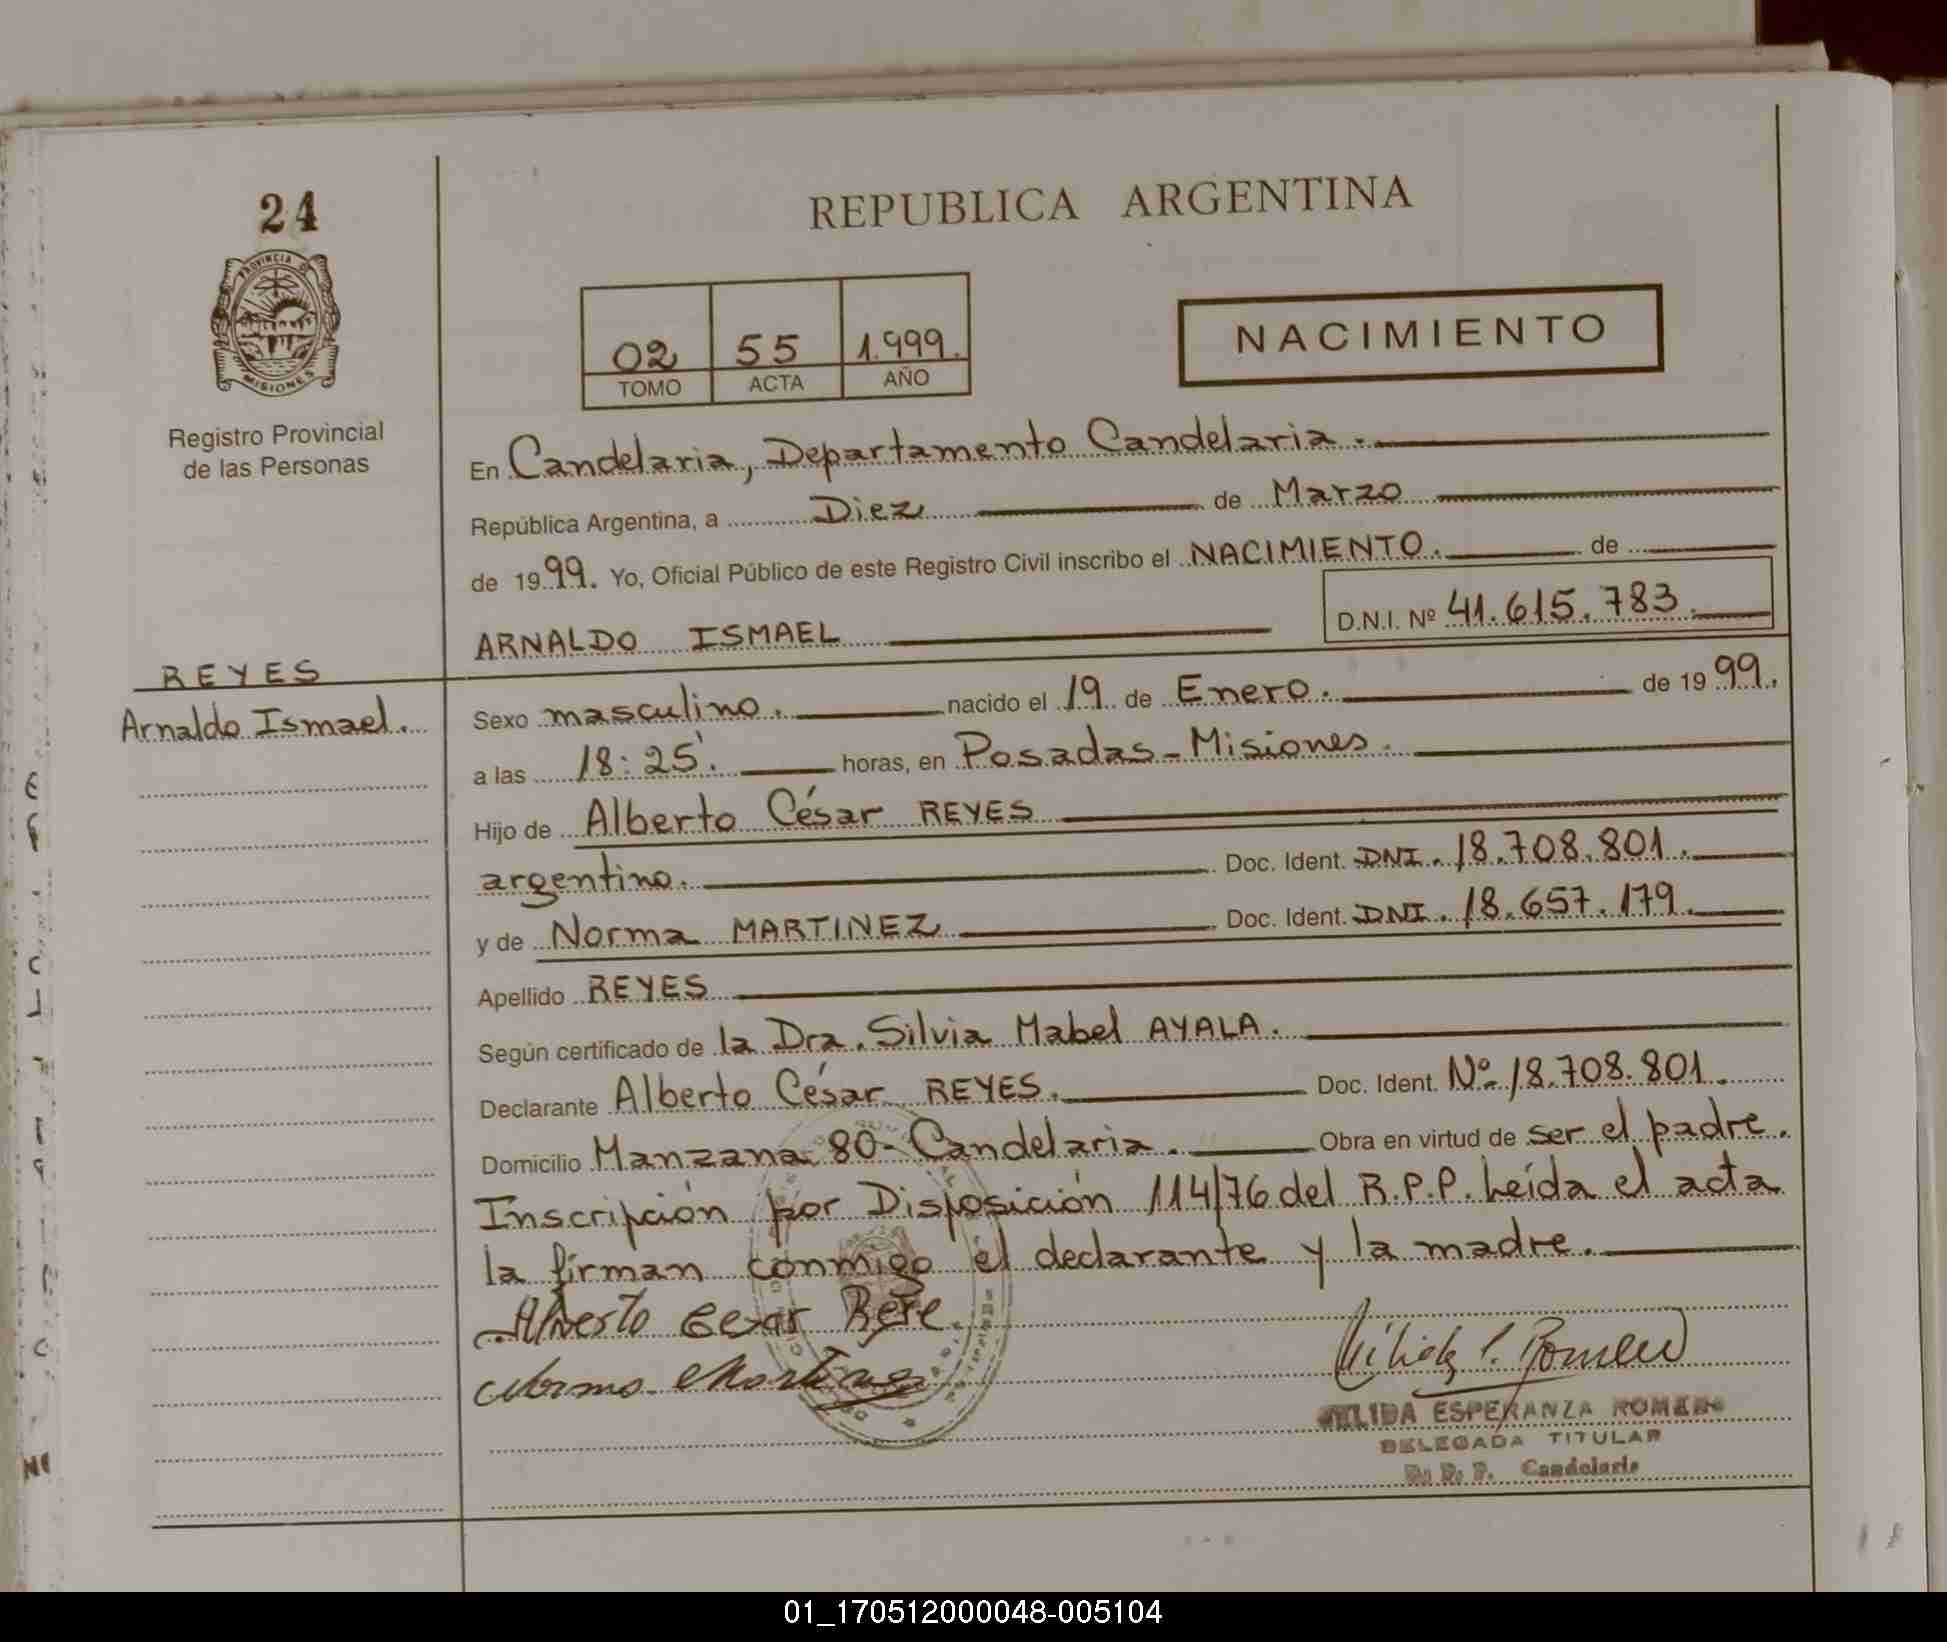 24
REPUBLICA ARGENTINA
PROVINCIA DE
MISIONES
02 55 1.999.
TOMO ACTA AÑO
NACIMIENTO
Registro Provincial
de las Personas
En Candelaria, Departamento Candelaria.
República Argentina, a Diez de Marzo
de 1999. Yo, Oficial Público de este Registro Civil inscribo el NACIMIENTO. de
ARNALDO ISMAEL D.N.I. Nº 41.615.783.
REYES
Arnaldo Ismael.
Sexo masculino. nacido el 19 de Enero. de 1999.
a las 18:25'. horas, en Posadas-Misiones.
Hijo de Alberto César REYES
argentino. Doc. Ident. DNI. 18.708.801.
y de Norma MARTINEZ Doc. Ident. DNI. 18.657.179.
Apellido REYES
Según certificado de la Dra. Silvia Mabel AYALA.
Declarante Alberto César REYES. Doc. Ident. Nº 18.708.801.
Domicilio Manzana 80-Candelaria. Obra en virtud de ser el padre.
Inscripción por Disposición 114/76 del R.P.P. Leída el acta
la firman conmigo el declarante y la madre.
Alberto Cezar Reye
Norma Martinez
ESPERANZA ROMERO
DELEGADA TITULAR
Candelaria
01_170512000048-005104